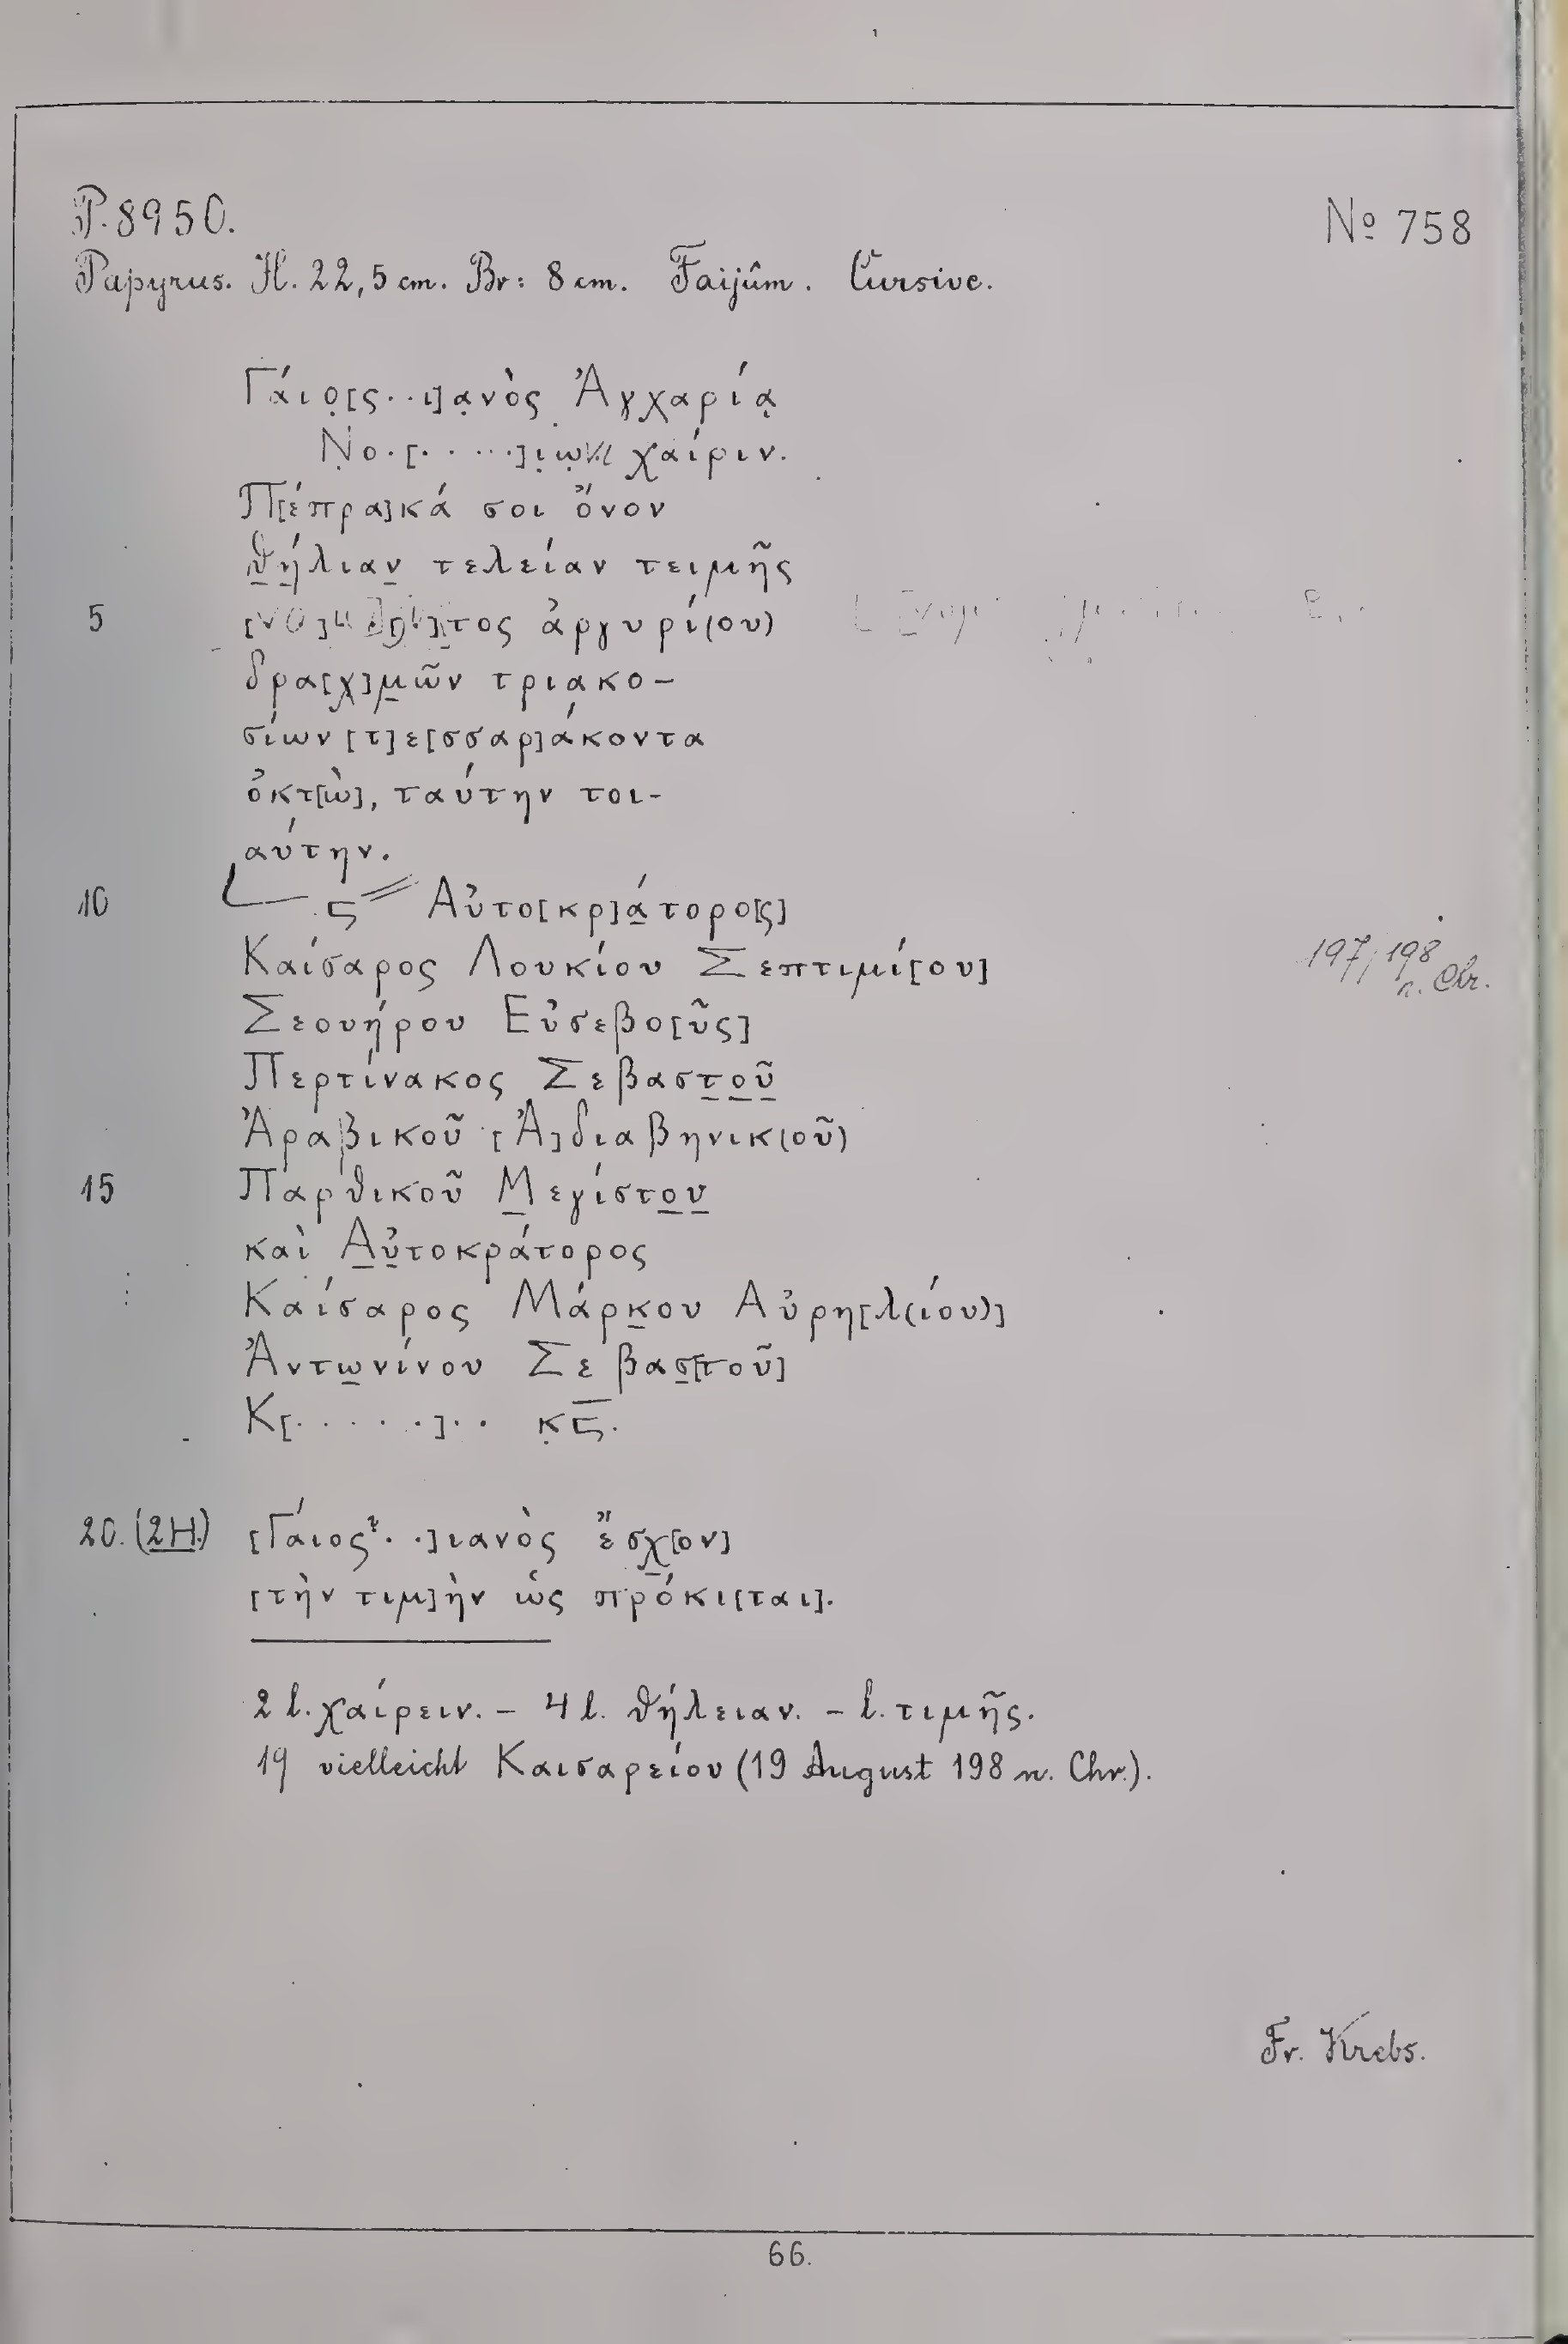 P. 8950.
Nº 758
Papyrus. H. 22,5 cm. Br: 8 cm. Faijûm. Cursive.
Γάιο̣[ς..ι]α̣νὸς Ἀγχαρίᾳ
Ν̣ο.[.....]ι̣ω̣νι χαίριν.
Π[έπρα]κά σοι ὄνον
θ̣ή̣λιαν̣ τελείαν τειμῆς
5 τος ἀργυρί(ου)
δρα[χ]μ̣ῶν τριακο-
σίων [τ]ε[σσαρ]άκοντα
ὀκτ[ὼ], ταύτην τοι-
αύτην.
10 ϛ Αὐτο[κρ]ά̣τορο[ς]
Καίσαρος Λουκίου Σεπτιμί[ου]
197/198 n. Chr.
Σεουήρου Εὐσεβο[ῦς]
Περτίνακος Σεβασ̣τ̣ο̣ῦ̣
Ἀραβικοῦ [Ἀ]διαβηνικ(οῦ)
15 Παρθικοῦ Μ̣εγίστο̣υ̣
καὶ Α̣ὐ̣τοκράτορος
Καίσαρος Μάρκ̣ου Αὐρη[λ(ίου)]
Ἀντω̣νίνου Σεβασ̣[τοῦ]
Κ[......].. κ̣ϛ̅.
20. (2H.) [Γάιος?..]ιανὸς ἔσχ̣[ον]
[τὴν τιμ]ὴν ὡς πρόκι[ται].
2 l. χαίρειν. – 4 l. θήλειαν. – l. τιμῆς.
19 vielleicht Καισαρείου (19 August 198 n. Chr.).
Fr. Krebs.
66.